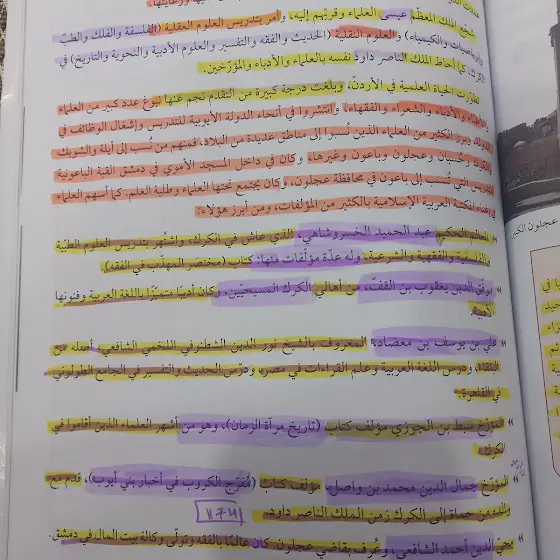 شجّع الملك المعظّم عيسى العلماء وقرّبهم إليه، وأمر بتدريس العلوم العقلية (الفلسفة والفلك والطبّ
والرياضيات والكيمياء) والعلوم النقلية (الحديث والفقه والتفسير والعلوم الأدبية والنحوية والتاريخ) في
الكرك، كما أحاط الملك الناصر داود نفسه بالعلماء والأدباء والمؤرّخين.
تطوّرت الحياة العلمية في الأردنّ، وبلغت درجة كبيرة من التقدم نجم عنها نبوغ عدد كبير من العلماء
والأطباء والأدباء والشعراء والفقهاء، وانتشروا في أنحاء الدولة الأيوبية للتدريس وإشغال الوظائف في
الدولة، وبرز الكثير من العلماء الذين نُسبوا إلى مناطق عديدة من البلاد، فمنهم من نُسب إلى أيلة والشوبك
والكرك وحُسبان وعجلون وباعون وغيرها، وكان في داخل المسجد الأموي في دمشق القبة الباعونية
للتدريس التي نُسبت إلى باعون في محافظة عجلون، وكان يجتمع تحتها العلماء وطلبة العلم، كما أسهم العلماء
المكتبة العربية الإسلامية بالكثير من المؤلفات، ومن أبرز هؤلاء:
عبد الحميد الخسروشاهي، الذي عاش في الكرك، واشتُهر بتدريس العلوم الطبّية
والفلسفية والفقهية والشرعية، وله عدّة مؤلّفات منها: كتاب (مختصر المهذّب في الفقه).
موفّق الدين يعقوب بن القفّ، من أهالي الكرك المسيحيّين، وكان أديبًا متميّزًا باللغة العربية وفنونها
علي بن يوسف بن معضاد، المعروف بالشيخ نور الدين الشطنوفي اللخمي الشافعي، أصله من
البلقاء، ودرس اللغة العربية وعلم القراءات في مصر، ودرّس الحديث والتفسير في الجامع الطولوني
في القاهرة.
المؤرّخ سبط بن الجوزي مؤلّف كتاب (تاريخ مرآة الزمان)، وهو من أشهر العلماء الذين أقاموا في
الكرك.
المؤرّخ جمال الدين محمد بن واصل، مؤلّف كتاب (مُفرّج الكروب في أخبار بني أيوب)، قدم مع
والده من حماة إلى الكرك زمن الملك الناصر داود.
أحمد الشافعي، وعُرف بقاضي عجلون، كان عالمًا بالفقه وتولّى وكالة بيت المال في دمشق.
عجلون الكبير